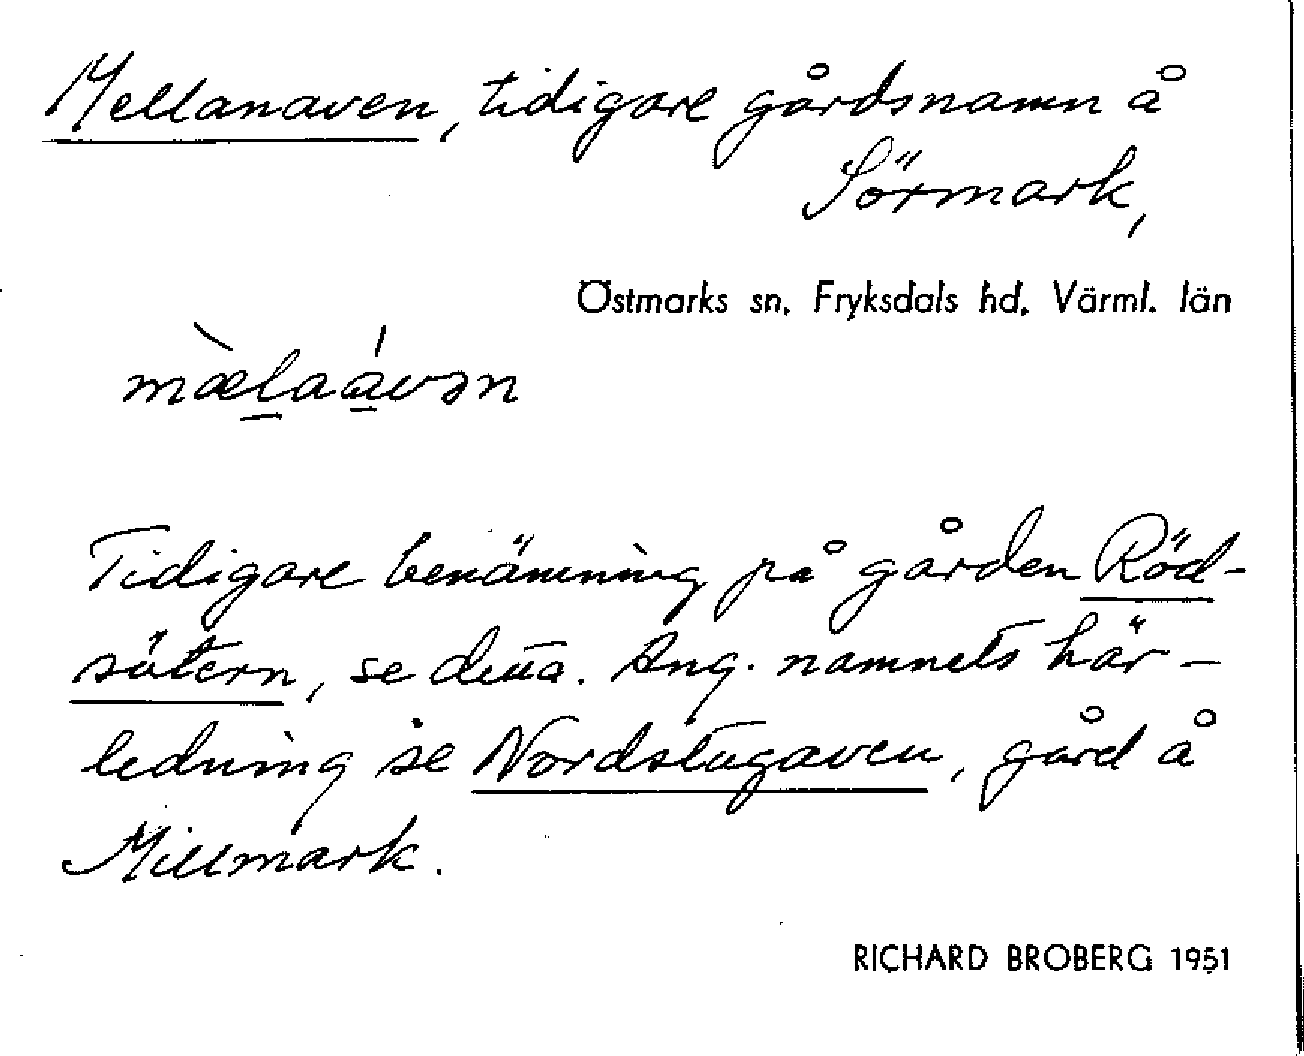 Mellanaven, tidigare gårdsnamn å
Sörmark,
Östmarks sn, Fryksdals hd, Värml. län
mæ̀laávən
Tidigare benämning på gården Röd-
sätern, se detta. Ang. namnets här-
ledning se Nordstugaven, gård å
Millmark.
RICHARD BROBERG 1951